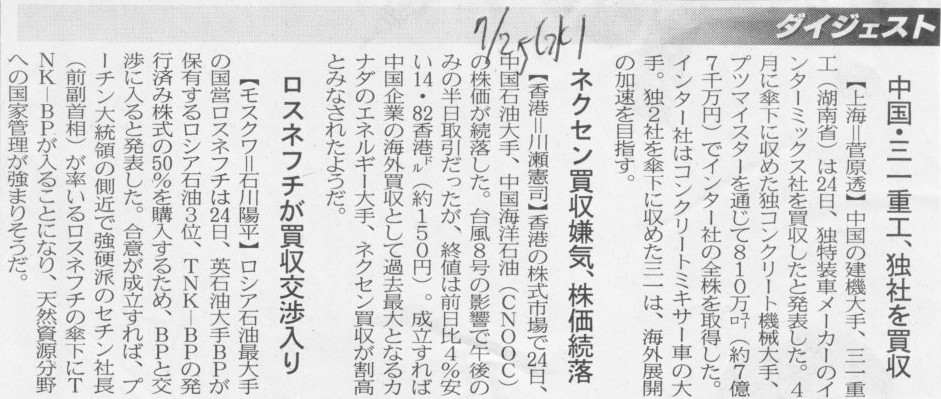 ダイジェスト
7/25
中国・三一重工、独社を買収
【上海＝菅原透】中国の建機大手、三一重
工（湖南省）は24日、独特装車メーカーのイ
ンターミックス社を買収したと発表した。4
月に傘下に収めた独コンクリート機械大手、
プツマイスターを通じて810万ユーロ（約7億
7千万円）でインター社の全株を取得した。
インター社はコンクリートミキサー車の大
手。独2社を傘下に収めた三一は、海外展開
の加速を目指す。
ネクセン買収嫌気、株価続落
【香港＝川瀬憲司】香港の株式市場で24日、
中国石油大手、中国海洋石油（CNOOC）
の株価が続落した。台風8号の影響で午後の
みの半日取引だったが、終値は前日比4％安
い14・82香港ドル（約150円）。成立すれば
中国企業の海外買収として過去最大となるカ
ナダのエネルギー大手、ネクセン買収が割高
とみなされたようだ。
ロスネフチが買収交渉入り
【モスクワ＝石川陽平】ロシア石油最大手
の国営ロスネフチは24日、英石油大手BPが
保有するロシア石油3位、TNK―BPの発
行済み株式の50％を購入するため、BPと交
渉に入ると発表した。合意が成立すれば、プ
ーチン大統領の側近で強硬派のセチン社長
（前副首相）が率いるロスネフチの傘下にT
NK―BPが入ることになり、天然資源分野
への国家管理が強まりそうだ。